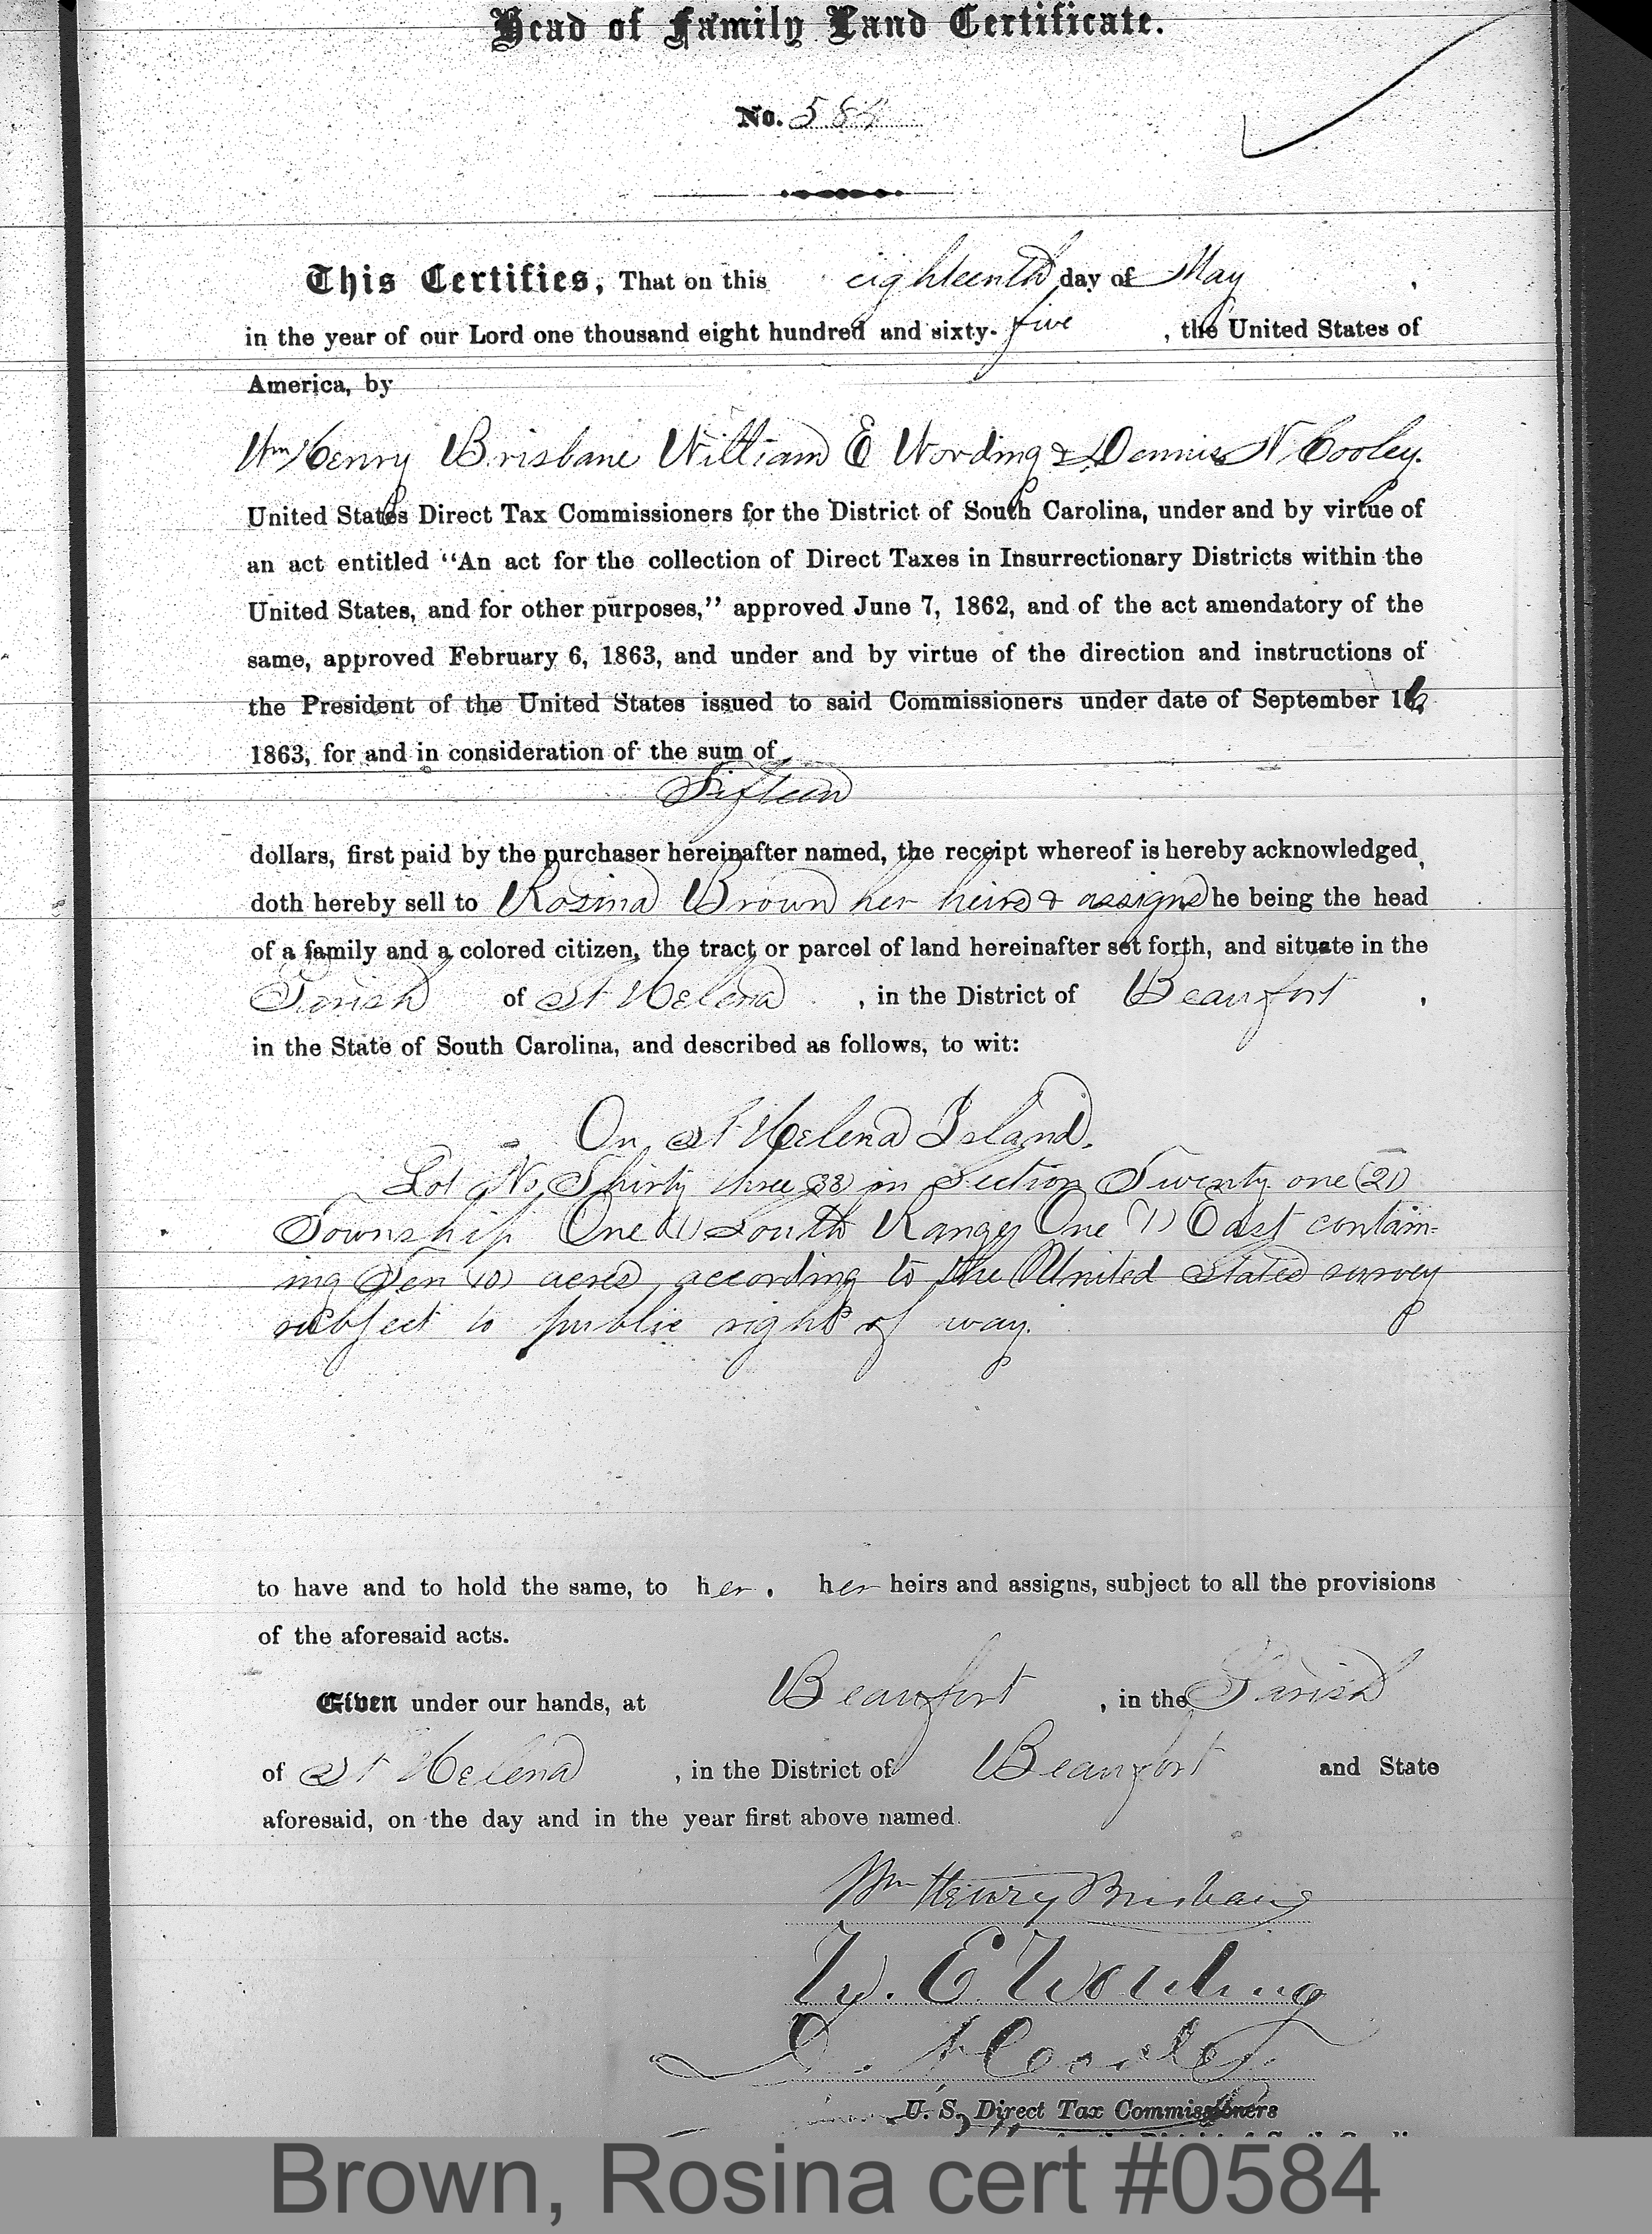 Head of Family Land Certificate.
No. 584
This Certifies, That on this eighteenth day of May ,
in the year of our Lord one thousand eight hundred and sixty-five , the United States of
America, by
Wm Henry Brisbane William E Wording & Dennis N Cooley.
United States Direct Tax Commissioners for the District of South Carolina, under and by virtue of
an act entitled "An act for the collection of Direct Taxes in Insurrectionary Districts within the
United States, and for other purposes," approved June 7, 1862, and of the act amendatory of the
same, approved February 6, 1863, and under and by virtue of the direction and instructions of
the President of the United States issued to said Commissioners under date of September 16
1863, for and in consideration of the sum of
Fifteen
dollars, first paid by the purchaser hereinafter named, the receipt whereof is hereby acknowledged,
doth hereby sell to Rosina Brown her heirs & assigns he being the head
of a family and a colored citizen, the tract or parcel of land hereinafter set forth, and situate in the
Parish of St Helena , in the District of Beaufort ,
in the State of South Carolina, and described as follows, to wit:
On St Helena Island.
Lot No Thirty three (33) in Section Twenty one (21)
Township One (1) South Range One (1) East contain-
ing Ten (10) acres, according to the United States survey
subject to public right of way.
to have and to hold the same, to her, her heirs and assigns, subject to all the provisions
of the aforesaid acts.
Given under our hands, at Beaufort , in the Parish
of St Helena , in the District of Beaufort and State
aforesaid, on the day and in the year first above named.
Wm Henry Brisbane
W. E. Wording
D. N. Cooley
U. S. Direct Tax Commissioners
Brown, Rosina cert #0584